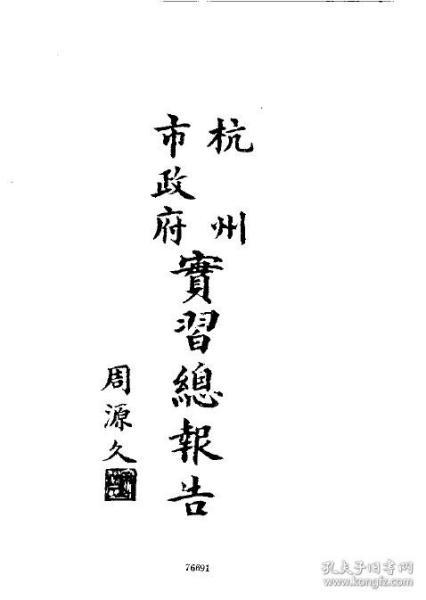 杭州
市政府
實習總報告
周源久
76691
孔夫子旧书网
www.kongfz.com